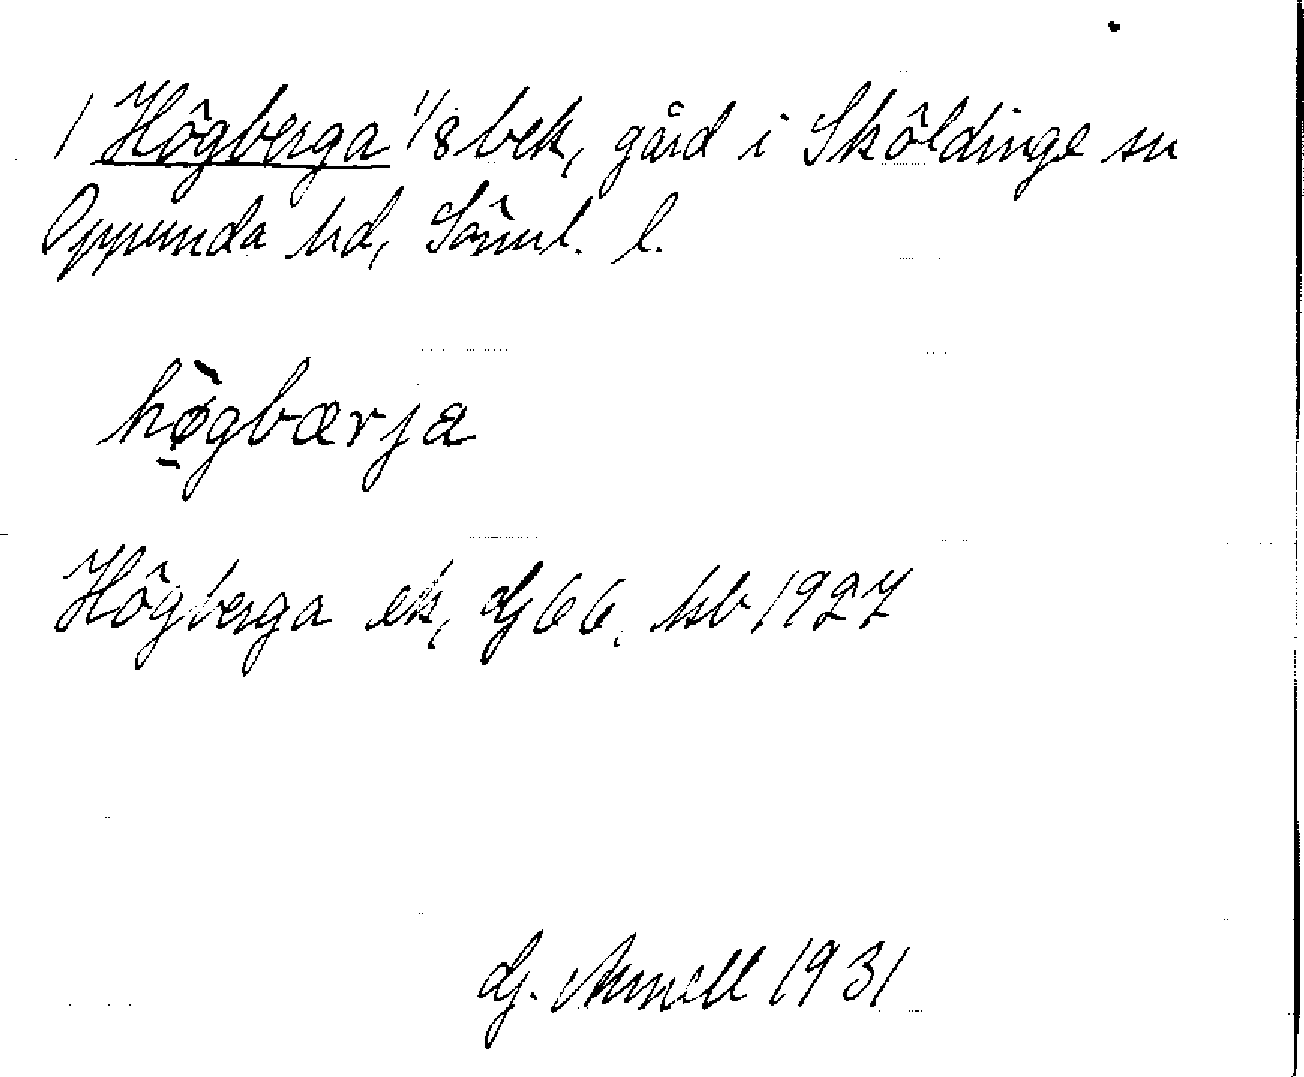 1 Högberga 1/8 bek, gård i Sköldinge sn
Oppunda hd, Söml. l.
hø̠̀gbærja
Högberga ek, G 66, hsb 1927
G. Arnell 1931